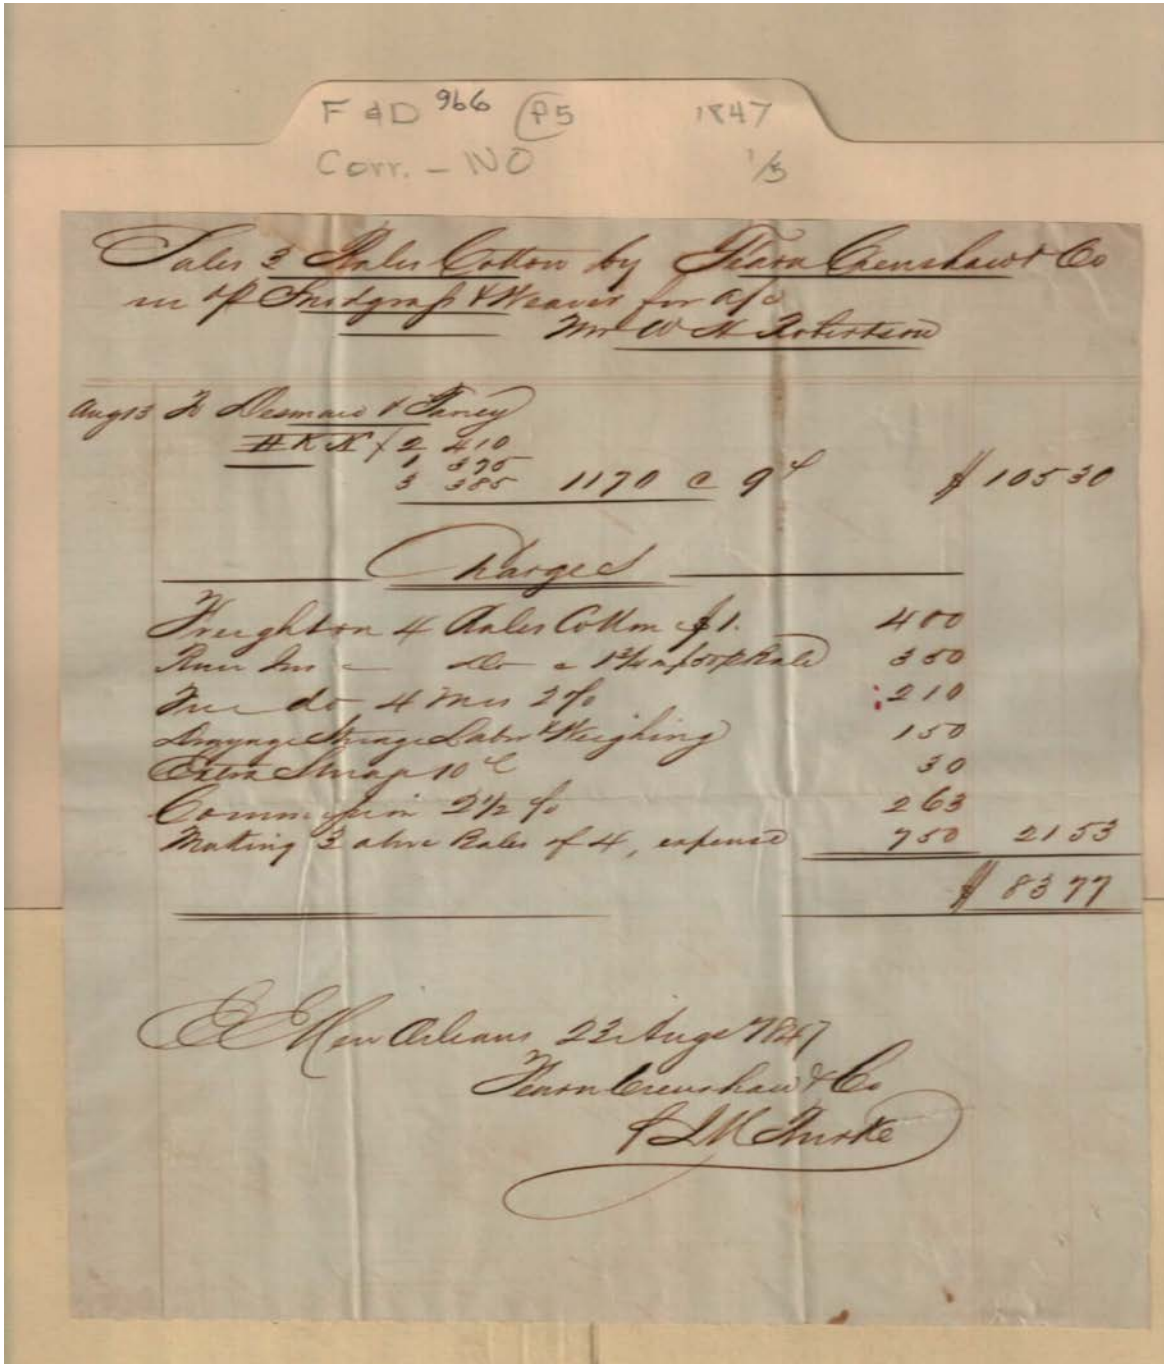 F & D 966 P5 1847
Corr. - NO 1/5
Sales 3 Bales Cotton by Fearn Crenshaw & Co
on a/c Snodgrass & Weaver for a/c
Mr W H Robertson
Aug 13 To Desmare & Taney
H K N / 2 410
1 375
3 385 1170 @ 9c $ 105 30
Charges
Freight on 4 Bales Cotton $1. 4 00
River Ins - Do - @ 1 3/4 % $50 p Bale 3 50
Fire do 4 Mos 2 % 2 10
Drayage Storage Labor & Weighing 1 50
Extra Storage 10c 30
Commission 2 1/2 % 2 63
Making 3 above Bales of 4, expense 7 50 21 53
$ 83 77
E E New Orleans 23 Augt 1847
Fearn Crenshaw & Co